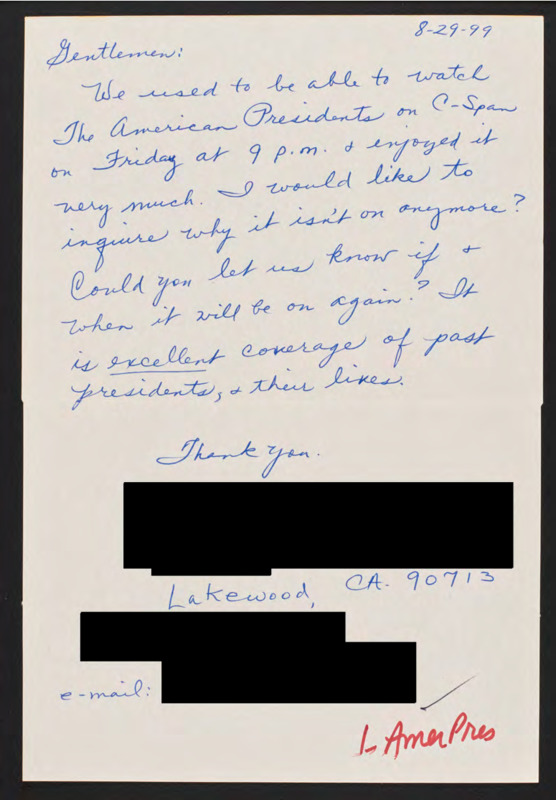 8-29-99
Gentlemen:
We used to be able to watch
The American Presidents on C-Span
on Friday at 9 p.m. & enjoyed it
very much. I would like to
inquire why it isn't on anymore?
Could you let us know if &
when it will be on again? It
is excellent coverage of past
presidents, & their lives.
Thank you.
Lakewood, CA. 90713
e-mail:
L AmerPres